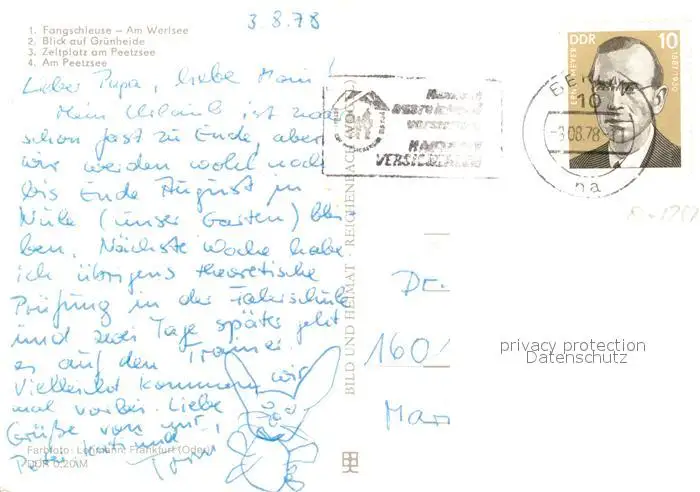 3.8.78
1. Fangschleuse – Am Werlsee
2. Blick auf Grünheide
3. Zeltplatz am Peetzsee
4. Am Peetzsee
Lieber Papa, liebe Mami!
Mein Urlaub ist zwar
schon fast zu Ende, aber
wir werden wohl noch
bis Ende August in
(unser Garten) blei-
ben. Nächste Woche habe
ich übrigens theoretische
Prüfung in der Fahrschule
und zwei Tage später geht
es auf den Trainer.
Vielleicht kommen wir
mal vorbei. Liebe
Grüße von mir,
Peter, und
Farbfoto: Lehmann, Frankfurt (Oder)
DDR 0,20 M
BILD UND HEIMAT · REICHENBACH
VERSICHERUNG
DDR 10
1887/1930
BERLIN
10
-3.08.78
na
Dr.
1601
Mar
privacy protection
Datenschutz